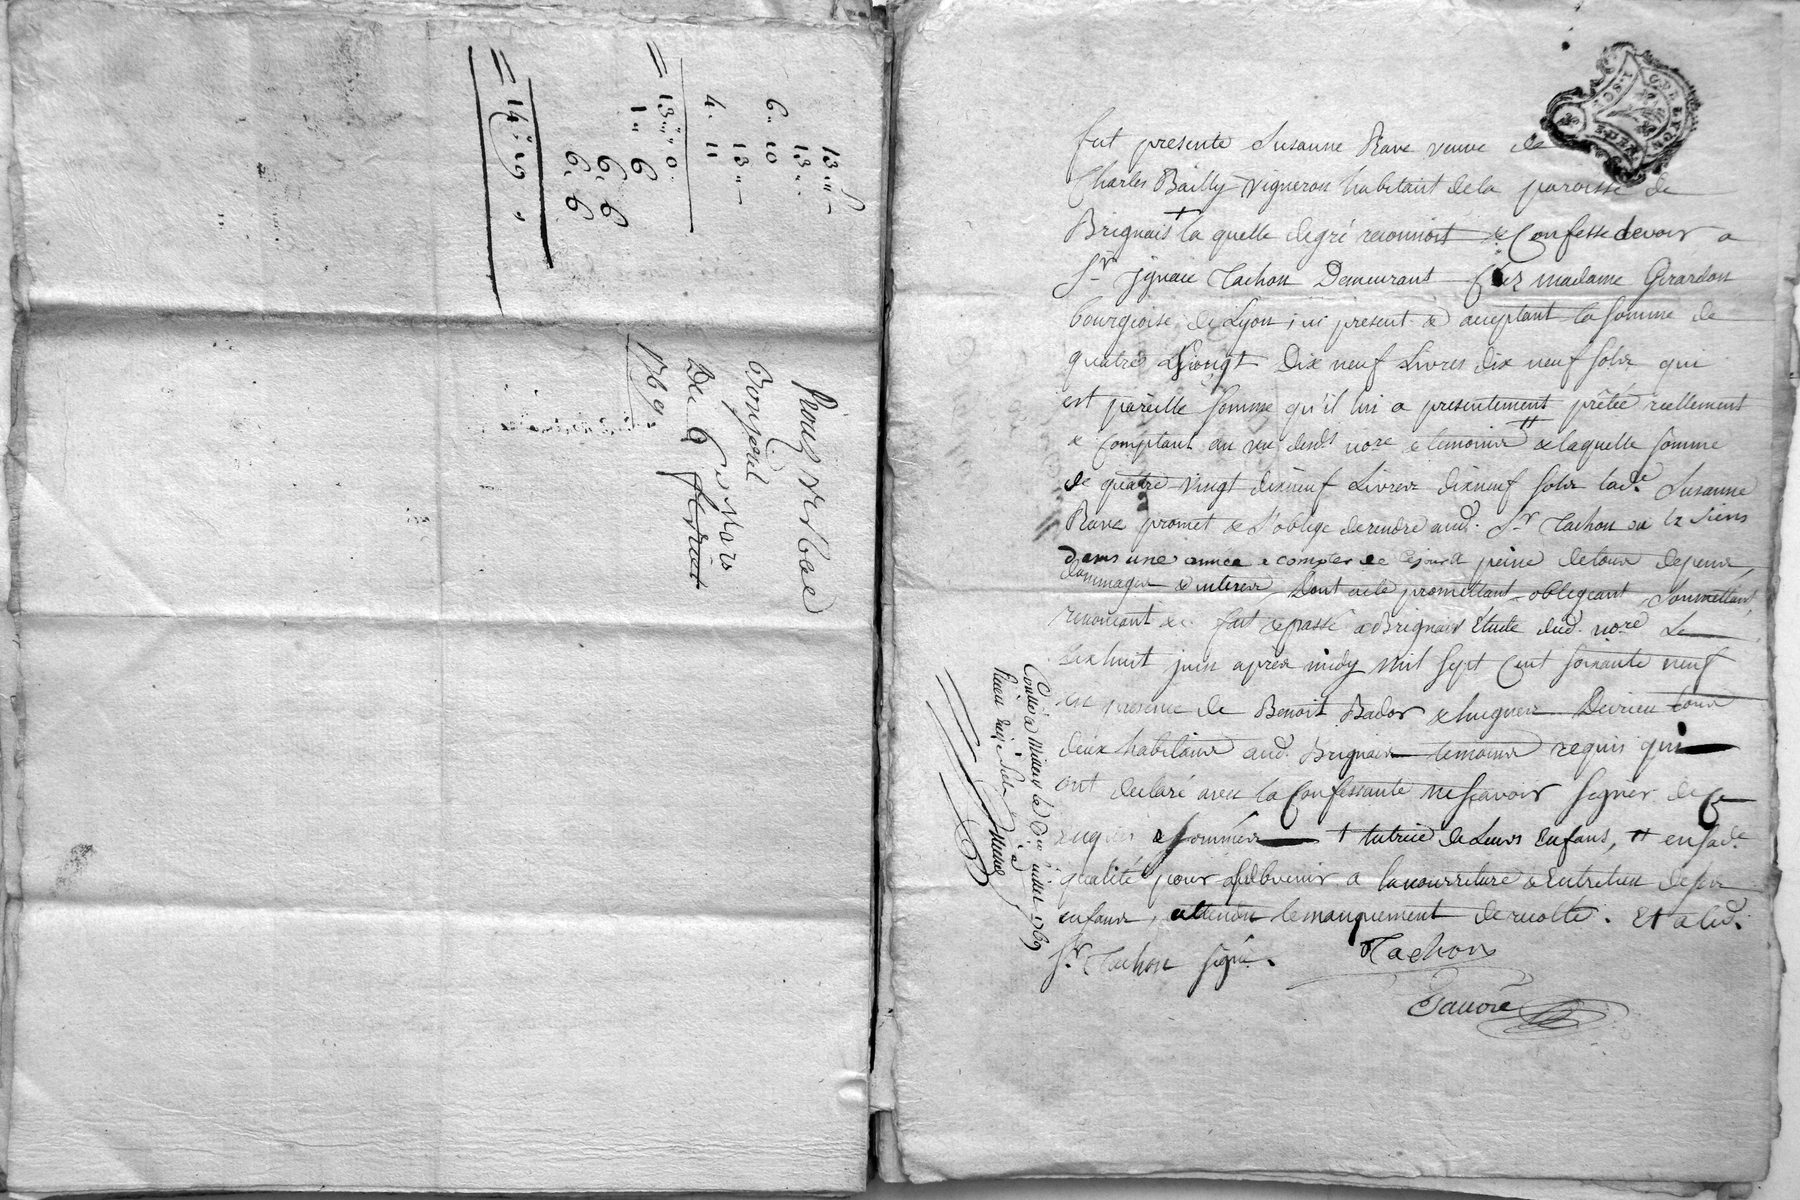 13 ᵗᵗ "
13 "
6 " 10
13 "
4 . 11
= 13 " 0
1 " 6
6 . 6
6 . 6
= 14 " 19
Procès verbal
Bonjour
Du 9 Mars
fevrier
1769
fut presente Susanne Rave veuve de
Charles Bailly vigneron habitant de la paroisse de
Brignais + la quelle de gré reconnoit & Confesse devoir a
Sr. jgnace Tachon Demeurant chez madame Girardon
bourgeoise de Lyon ici present & acceptant la somme de
quatre Vingt Dix neuf Livres dix neuf sols qui
est pareille somme qu'il lui a presentement prêtée reellement
& comptant au vu desds. nore. & temoins # & laquelle somme
de quatre Vingt dixneuf Livres dixneuf sols lade. Susanne
Rave promet & s'oblige de rendre aud. Sr. Tachon ou les siens
dans une année a compter de ce jour a peine de tous depens,
dommages & interets, Dont acte promettant, obligeant, soumettant,
renoncant &c. fait & passé a Brignais Etude dud. nore. Le
dixhuit juin après midy mil sept Cent soixante neuf
en presence de Benoit Bador & hugues Devrieu tous
deux habitans aud. Brignais temoins requis qui
ont declaré avec la Confessante ne sçavoir signer de ce
enquis & sommés + tutrice de Leurs Enfans, # en sade.
qualité pour subvenir a la nourriture & Entretien de ses
enfans, attendu le manquement de recolte. Et a led.
Sr. Tachon signé.
Tachon
Contlé à Millery le Dix juillet 1769
Reçu